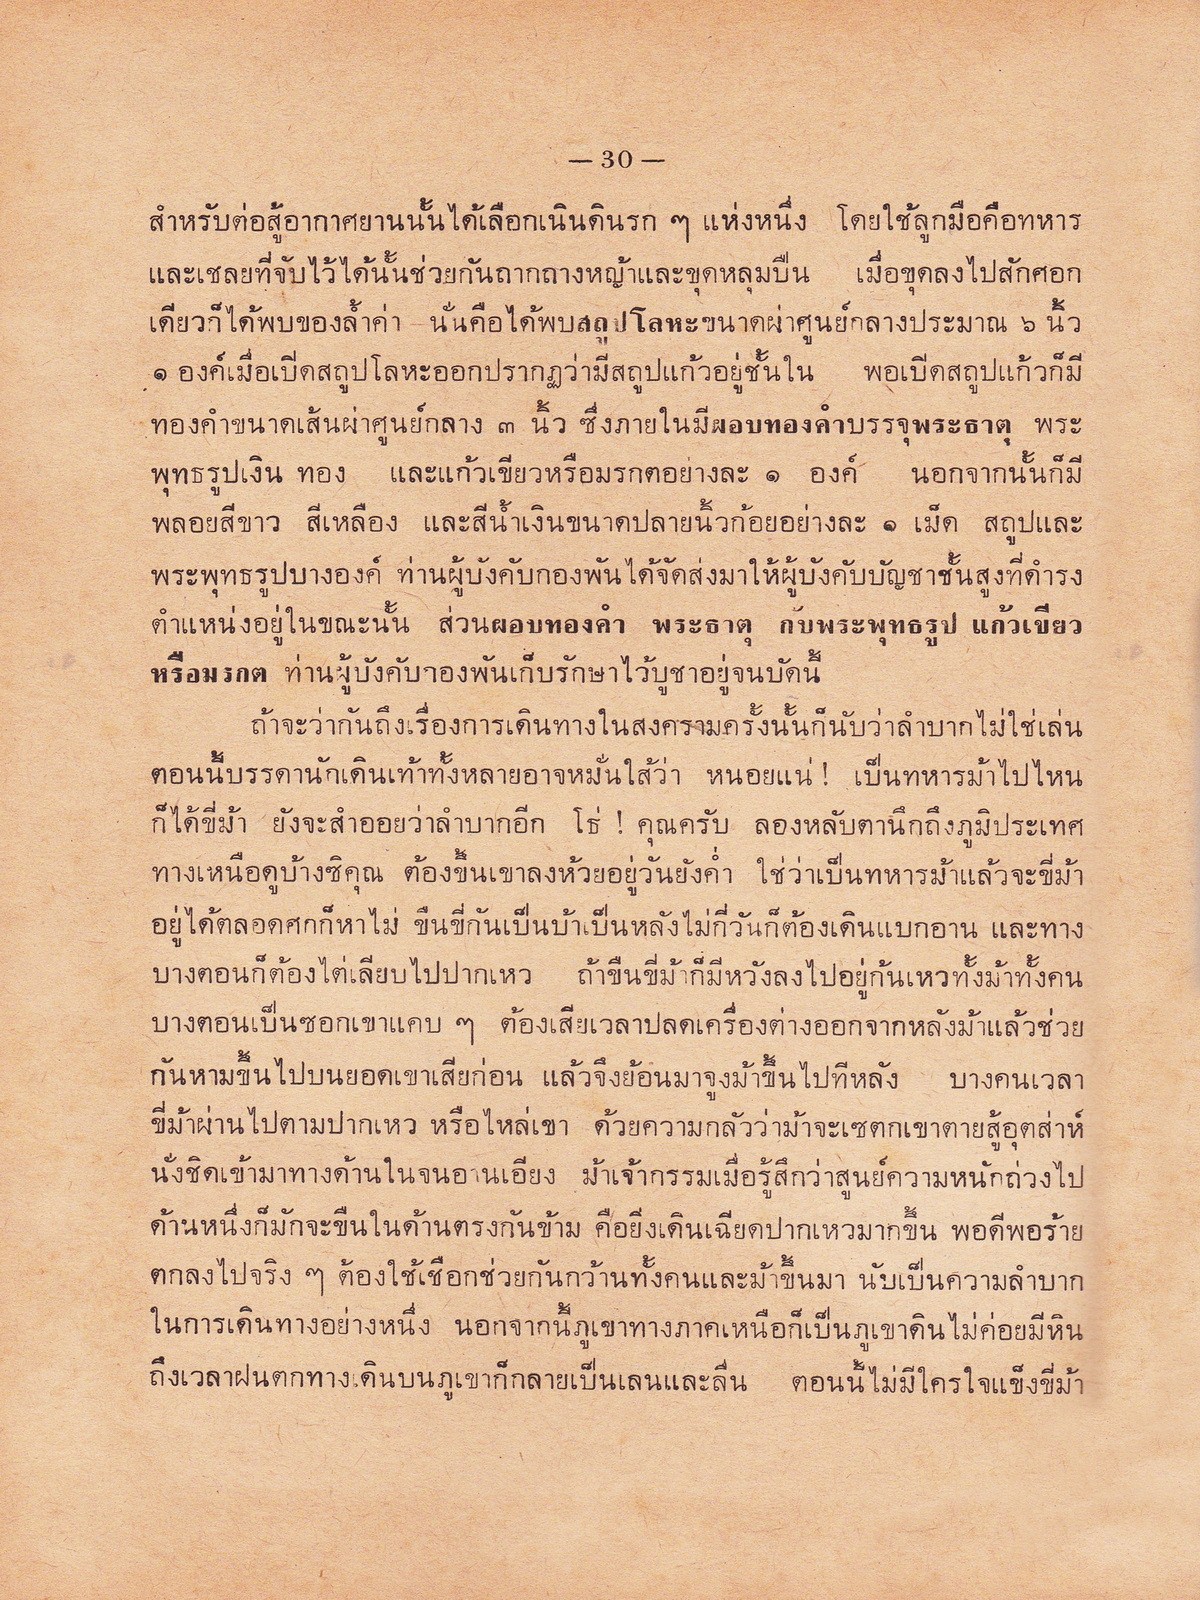 — 30 —
สำหรับต่อสู้อากาศยานนั้นได้เลือกเนินดินรก ๆ แห่งหนึ่ง โดยใช้ลูกมือคือทหาร
และเชลยที่จับไว้ได้นั้นช่วยกันถากถางหญ้าและขุดหลุมปืน เมื่อขุดลงไปสักศอก
เดียวก็ได้พบของล้ำค่า นั่นคือได้พบสถูปโลหะขนาดผ่าศูนย์กลางประมาณ ๖ นิ้ว
๑ องค์เมื่อเปิดสถูปโลหะออกปรากฏว่ามีสถูปแก้วอยู่ชั้นใน พอเปิดสถูปแก้วก็มี
ทองคำขนาดเส้นผ่าศูนย์กลาง ๓ นิ้ว ซึ่งภายในมีผอบทองคำบรรจุพระธาตุ พระ
พุทธรูปเงิน ทอง และแก้วเขียวหรือมรกตอย่างละ ๑ องค์ นอกจากนั้นก็มี
พลอยสีขาว สีเหลือง และสีน้ำเงินขนาดปลายนิ้วก้อยอย่างละ ๑ เม็ด สถูปและ
พระพุทธรูปบางองค์ ท่านผู้บังคับกองพันได้จัดส่งมาให้ผู้บังคับบัญชาชั้นสูงที่ดำรง
ตำแหน่งอยู่ในขณะนั้น ส่วนผอบทองคำ พระธาตุ กับพระพุทธรูป แก้วเขียว
หรือมรกต ท่านผู้บังคับกองพันเก็บรักษาไว้บูชาอยู่จนบัดนี้
ถ้าจะว่ากันถึงเรื่องการเดินทางในสงครามครั้งนั้นก็นับว่าลำบากไม่ใช่เล่น
ตอนนี้บรรดานักเดินเท้าทั้งหลายอาจหมั่นใส้ว่า หนอยแน่ ! เป็นทหารม้าไปไหน
ก็ได้ขี่ม้า ยังจะสำออยว่าลำบากอีก โธ่ ! คุณครับ ลองหลับตานึกถึงภูมิประเทศ
ทางเหนือดูบ้างซิคุณ ต้องขึ้นเขาลงห้วยอยู่วันยังค่ำ ใช่ว่าเป็นทหารม้าแล้วจะขี่ม้า
อยู่ได้ตลอดศกก็หาไม่ ขืนขี่กันเป็นบ้าเป็นหลังไม่กี่วันก็ต้องเดินแบกอาน และทาง
บางตอนก็ต้องไต่เลียบไปปากเหว ถ้าขืนขี่ม้าก็มีหวังลงไปอยู่ก้นเหวทั้งม้าทั้งคน
บางตอนเป็นซอกเขาแคบ ๆ ต้องเสียเวลาปลดเครื่องต่างออกจากหลังม้าแล้วช่วย
กันหามขึ้นไปบนยอดเขาเสียก่อน แล้วจึงย้อนมาจูงม้าขึ้นไปทีหลัง บางคนเวลา
ขี่ม้าผ่านไปตามปากเหว หรือไหล่เขา ด้วยความกลัวว่าม้าจะเซตกเขาตายสู้อุตส่าห์
นั่งชิดเข้ามาทางด้านในจนอานเอียง ม้าเจ้ากรรมเมื่อรู้สึกว่าสูนย์ความหนักถ่วงไป
ด้านหนึ่งก็มักจะขืนในด้านตรงกันข้าม คือยิ่งเดินเฉียดปากเหวมากขึ้น พอดีพอร้าย
ตกลงไปจริง ๆ ต้องใช้เชือกช่วยกันกว้านทั้งคนและม้าขึ้นมา นับเป็นความลำบาก
ในการเดินทางอย่างหนึ่ง นอกจากนี้ภูเขาทางภาคเหนือก็เป็นภูเขาดินไม่ค่อยมีหิน
ถึงเวลาฝนตกทางเดินบนภูเขาก็กลายเป็นเลนและลื่น ตอนนี้ไม่มีใครใจแข็งขี่ม้า